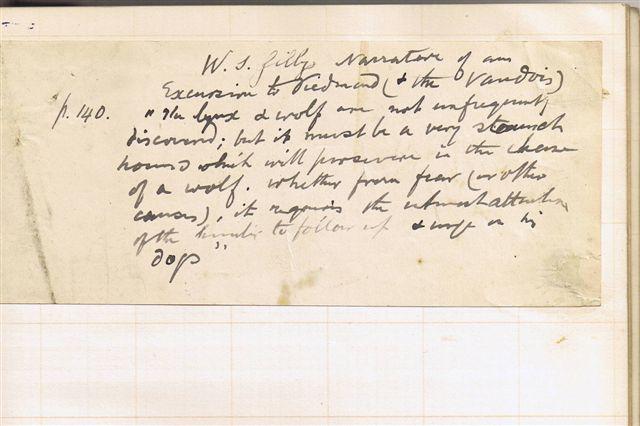 W. S. Gilly Narrative of an
Excursion to Piedmond (& the Vaudois)
p. 140. "The lynx & wolf are not unfrequently
discovered; but it must be a very staunch
hound which will persevere in the chase
of a wolf. Whether from fear (or other
causes), it requires the utmost attention
of the hunter to follow up & urge on his
dogs"